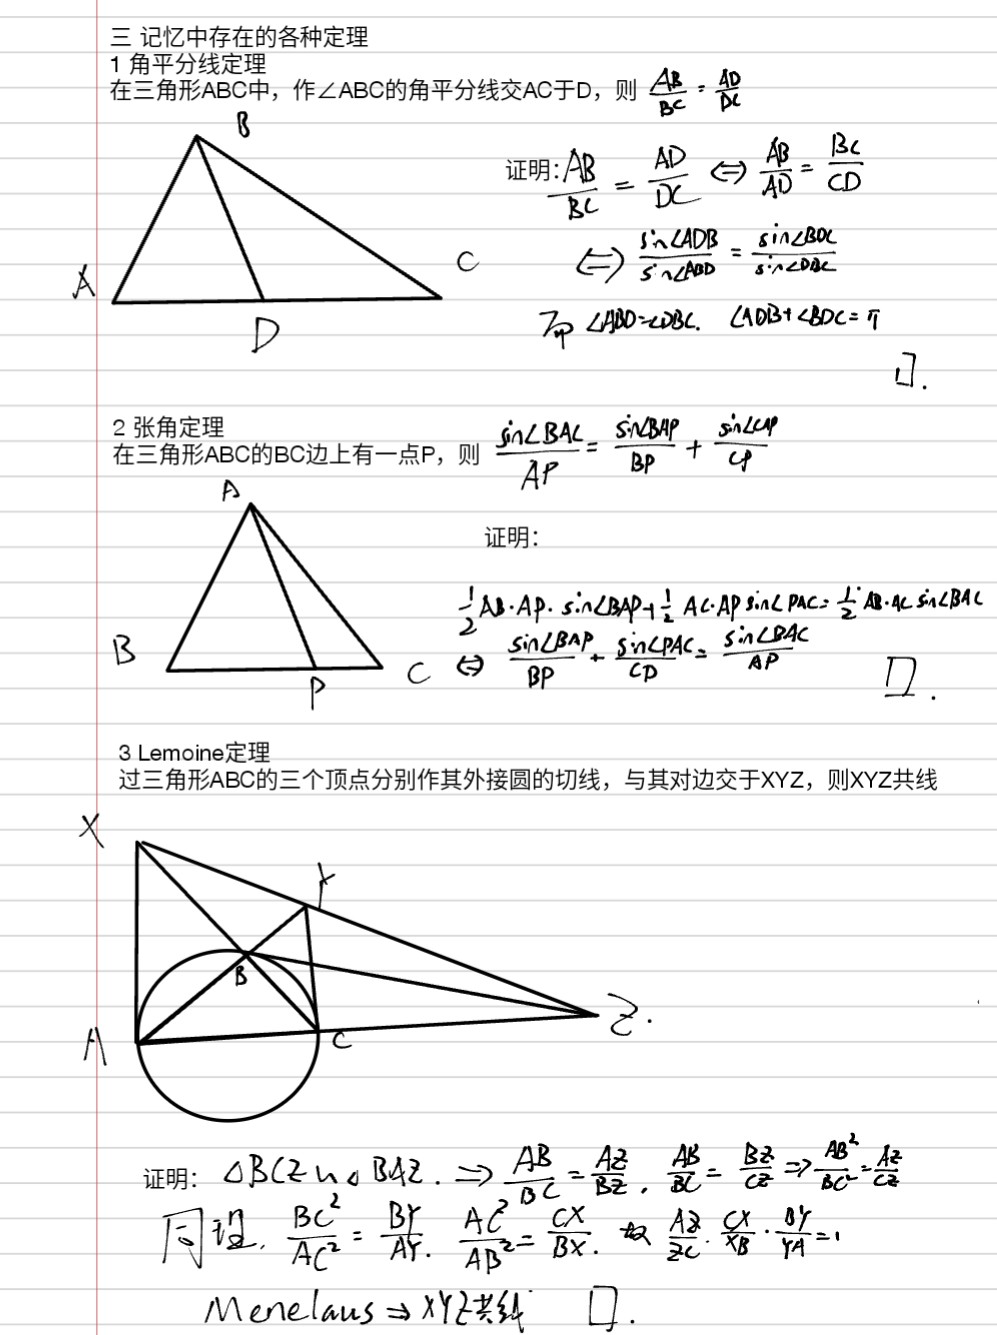 三 记忆中存在的各种定理
1 角平分线定理
在三角形ABC中，作∠ABC的角平分线交AC于D，则 AB/BC = AD/DC
B
证明: AB/BC = AD/DC ⇔ AB/AD = BC/CD
⇔ sin∠ADB/sin∠ABD = sin∠BDC/sin∠DBC
A
C
D
∠ABD=∠DBC. ∠ADB+∠BDC=π
□.
2 张角定理
在三角形ABC的BC边上有一点P，则 sin∠BAC/AP = sin∠BAP/BP + sin∠CAP/CP
A
证明：
1/2 AB·AP·sin∠BAP+1/2 AC·AP sin∠PAC=1/2 AB·AC sin∠BAC
⇔ sin∠BAP/BP + sin∠PAC/CP = sin∠BAC/AP
B
C
P
□.
3 Lemoine定理
过三角形ABC的三个顶点分别作其外接圆的切线，与其对边交于XYZ，则XYZ共线
X
Y
B
Z.
A
C
证明： △BCZ∽△BAZ. ⇒ AB/BC = AZ/BZ, AB/BC = BZ/CZ ⇒ AB²/BC² = AZ/CZ
同理, BC²/AC² = BY/AY. AC²/AB² = CX/BX. 故 AZ/ZC · CX/XB · BY/YA = 1
Menelaus ⇒ XYZ共线 □.